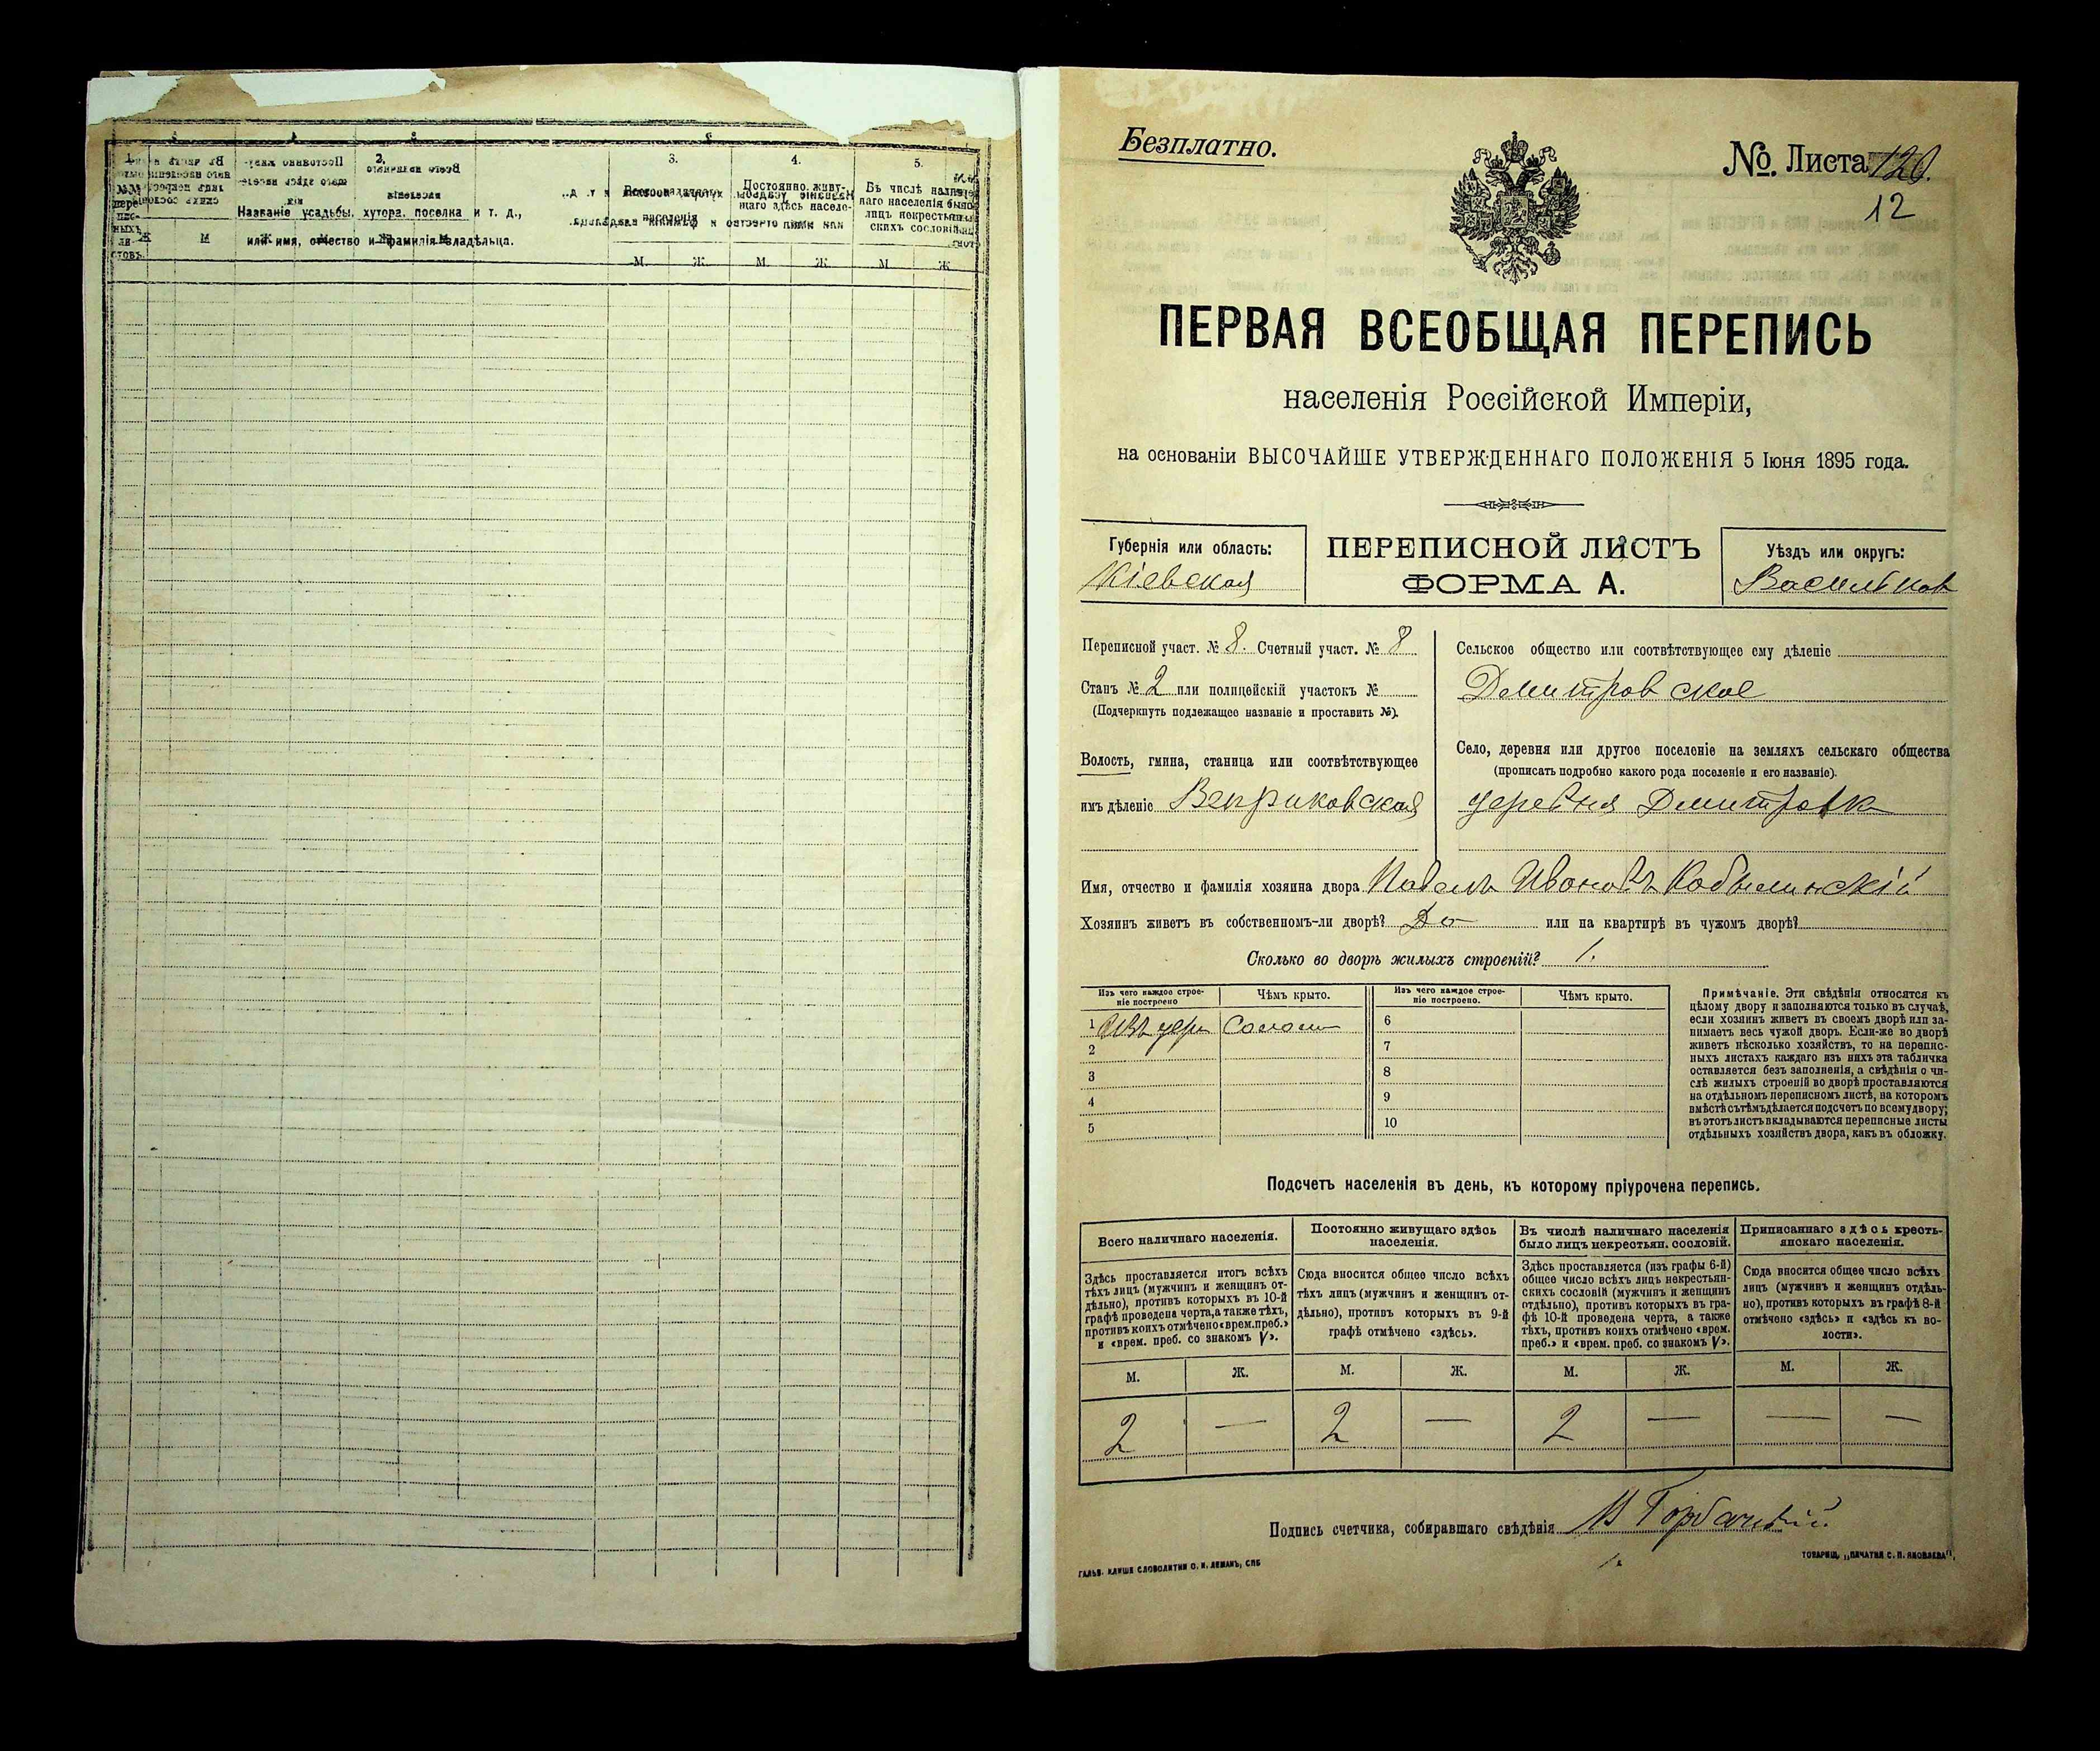 1.
2.
3.
4.
5.
Названіе усадьбы, хутора, поселка и т. д.,
или имя, отчество и фамилія владѣльца.
Постоянно живу-
щаго здѣсь населе-
Въ числѣ налич-
наго населенія было
лицъ некрестьян-
скихъ сословій
М. Ж. М. Ж. М. Ж.
Безплатно.
№. Листа 120.
12
ПЕРВАЯ ВСЕОБЩАЯ ПЕРЕПИСЬ
населенія Россійской Имперіи,
на основаніи ВЫСОЧАЙШЕ УТВЕРЖДЕННАГО ПОЛОЖЕНІЯ 5 Іюня 1895 года.
Губернія или область:
Кіевская
ПЕРЕПИСНОЙ ЛИСТЪ
ФОРМА А.
Уѣздъ или округъ:
Васильков
Переписной участ. № 8. Счетный участ. № 8
Станъ № 2 или полицейскій участокъ №
(Подчеркнуть подлежащее названіе и проставить №).
Волость, гмина, станица или соотвѣтствующее
имъ дѣленіе Веприковская
Сельское общество или соотвѣтствующее ему дѣленіе
Дмитровское
Село, деревня или другое поселеніе на земляхъ сельскаго общества
(прописать подробно какого рода поселеніе и его названіе).
деревня Дмитровк
Имя, отчество и фамилія хозяина двора Павелъ Ивановъ Кобылинскій
Хозяинъ живетъ въ собственномъ-ли дворѣ? Да или на квартирѣ въ чужомъ дворѣ?
Сколько во дворѣ жилыхъ строеній? 1.
Изъ чего каждое строе-
ніе построено
Чѣмъ крыто.
Изъ чего каждое строе-
ніе построено.
Чѣмъ крыто.
1 Изъ дер Солом
2
3
4
5
6
7
8
9
10
Примѣчаніе. Эти свѣдѣнія относятся къ
цѣлому двору и заполняются только въ случаѣ,
если хозяинъ живетъ въ своемъ дворѣ или за-
нимаетъ весь чужой дворъ. Если-же во дворѣ
живетъ нѣсколько хозяйствъ, то на перепис-
ныхъ листахъ каждаго изъ нихъ эта табличка
оставляется безъ заполненія, а свѣдѣнія о чи-
слѣ жилыхъ строеній во дворѣ проставляются
на отдѣльномъ переписномъ листѣ, на которомъ
вмѣстѣ съ тѣмъ дѣлается подсчетъ по всему двору;
въ этотъ листъ вкладываются переписные листы
отдѣльныхъ хозяйствъ двора, какъ въ обложку.
Подсчетъ населенія въ день, къ которому пріурочена перепись.
Всего наличнаго населенія.
Здѣсь проставляется итогъ всѣхъ
тѣхъ лицъ (мужчинъ и женщинъ от-
дѣльно), противъ которыхъ въ 10-й
графѣ проведена черта, а также тѣхъ,
противъ коихъ отмѣчено «врем. преб.»
и «врем. преб. со знакомъ V».
Постоянно живущаго здѣсь
населенія.
Сюда вносится общее число всѣхъ
тѣхъ лицъ (мужчинъ и женщинъ от-
дѣльно), противъ которыхъ въ 9-й
графѣ отмѣчено «здѣсь».
Въ числѣ наличнаго населенія
было лицъ некрестьян. сословій.
Здѣсь проставляется (изъ графы 6-й)
общее число всѣхъ лицъ некрестьян-
скихъ сословій (мужчинъ и женщинъ
отдѣльно), противъ которыхъ въ гра-
фѣ 10-й проведена черта, а также
тѣхъ, противъ коихъ отмѣчено «врем.
преб.» и «врем. преб. со знакомъ V».
Приписаннаго здѣсь кресть-
янскаго населенія.
Сюда вносится общее число всѣхъ
лицъ (мужчинъ и женщинъ отдѣль-
но), противъ которыхъ въ графѣ 8-й
отмѣчено «здѣсь» и «здѣсь къ во-
лости».
М. Ж. М. Ж. М. Ж. М. Ж.
2 — 2 — 2 — — —
Подпись счетчика, собиравшаго свѣдѣнія
ГАЛЬВ. КЛИШЕ СЛОВОЛИТНИ О. И. ЛЕМАНЪ, СПБ
ТОВАРИЩ. „ПЕЧАТНЯ С. П. ЯКОВЛЕВА“,